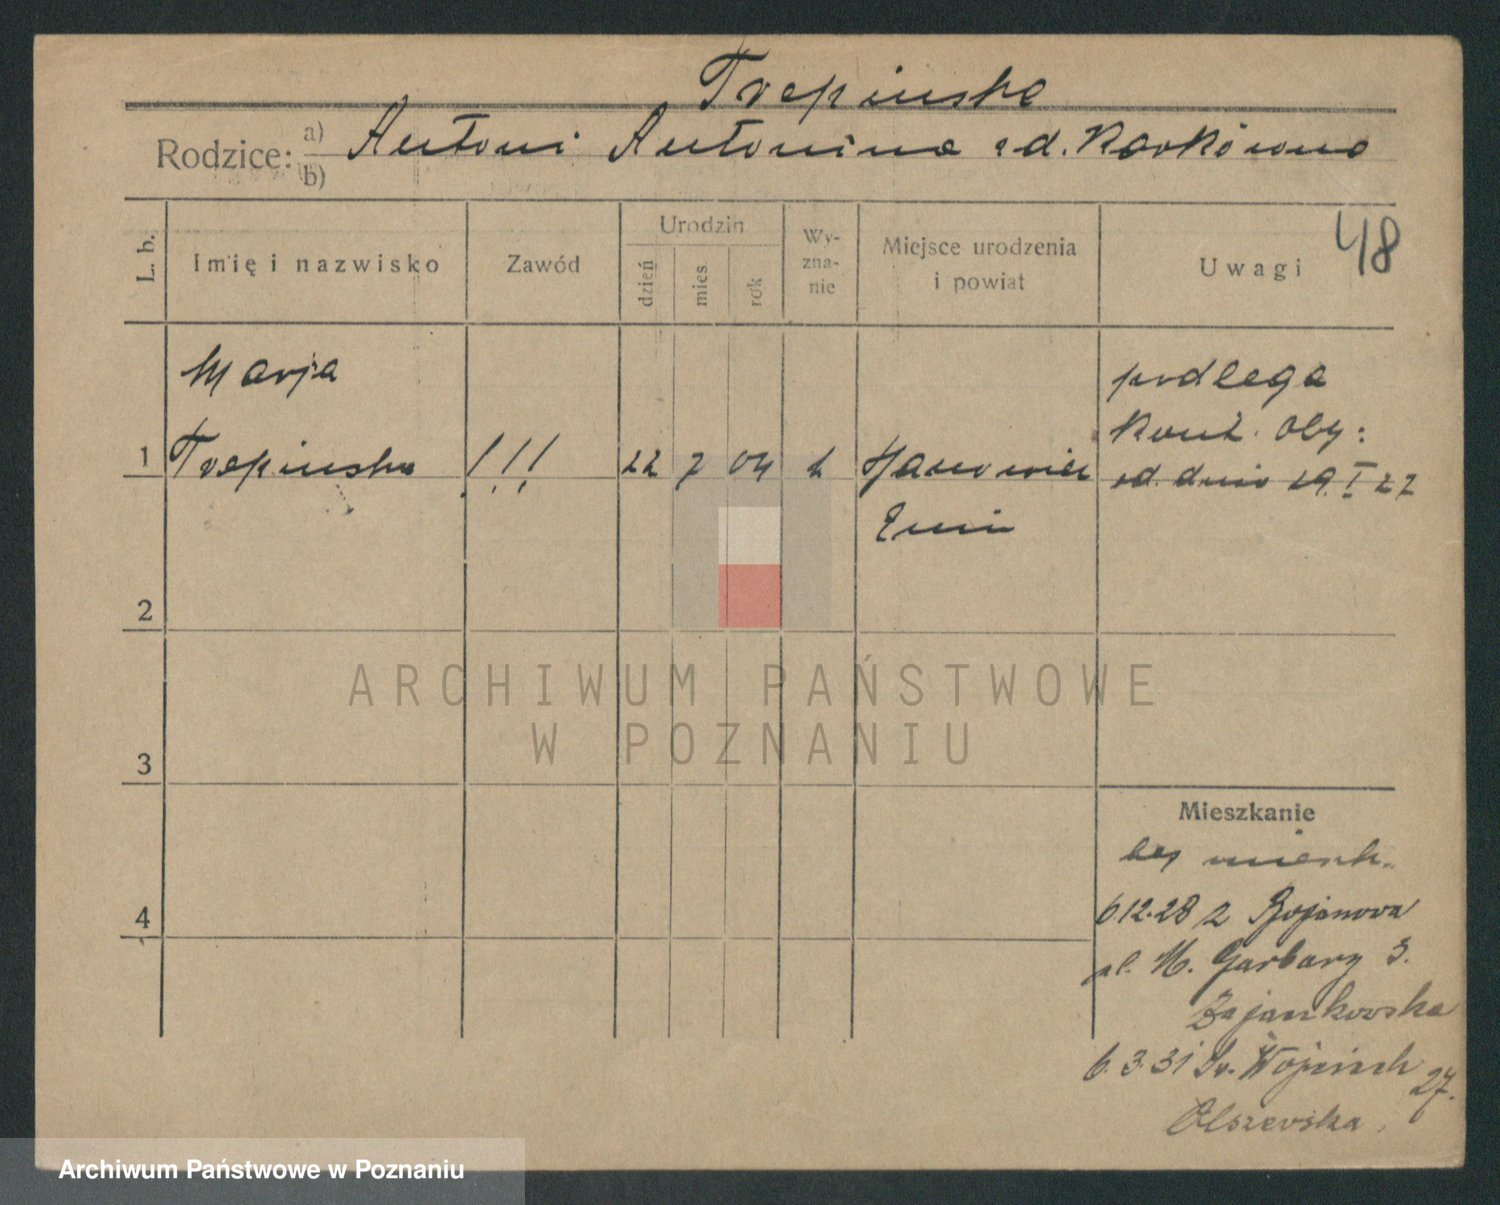 Trepinska
Rodzice: a) b) Antoni Antonina
48
L. b.
Imię i nazwisko
Zawód
Urodzin
dzień
mies
rok
Wy-
zna-
nie
Miejsce urodzenia
i powiat
Uwagi
Marja
1 Trepinska !!! 22 7 04
podlega
Kont. Oby:
od. dnia 19. I 27
2
3
4
Mieszkanie
bez mieszk.
6.12.28 z Bojanowa
ul. M. Garbary 3.
Zajankowska
6.3.31 Św. Wojciech 27.
Olszewska
ARCHIWUM PAŃSTWOWE
W POZNANIU
Archiwum Państwowe w Poznaniu